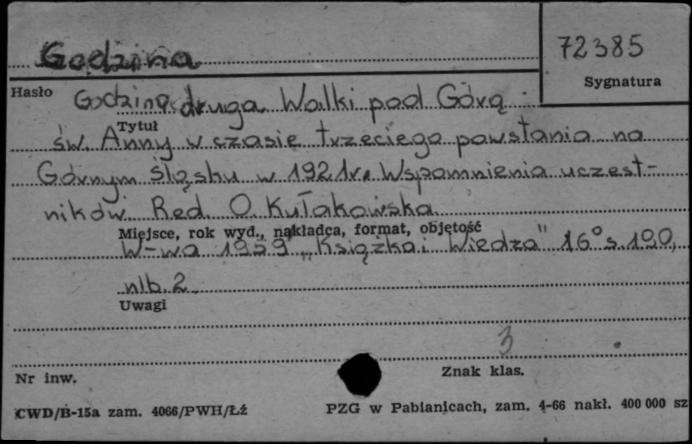 Godzina
72385
Hasło
Sygnatura
Godzina druga Walki pod Górą
Tytuł
św. Anny w czasie trzeciego powstania na
Górnym Śląsku w 1921r. Wspomnienia uczest-
ników Red O. Kułakowska
Miejsce, rok wyd., nakładca, format, objętość
W-wa 1959 „Książka i Wiedza" 16° s. 190,
nlb. 2
Uwagi
3
Nr inw.
Znak klas.
CWD/B-15a zam. 4066/PWH/Łź
PZG w Pabianicach, zam. 4-66 nakł. 400 000 sz